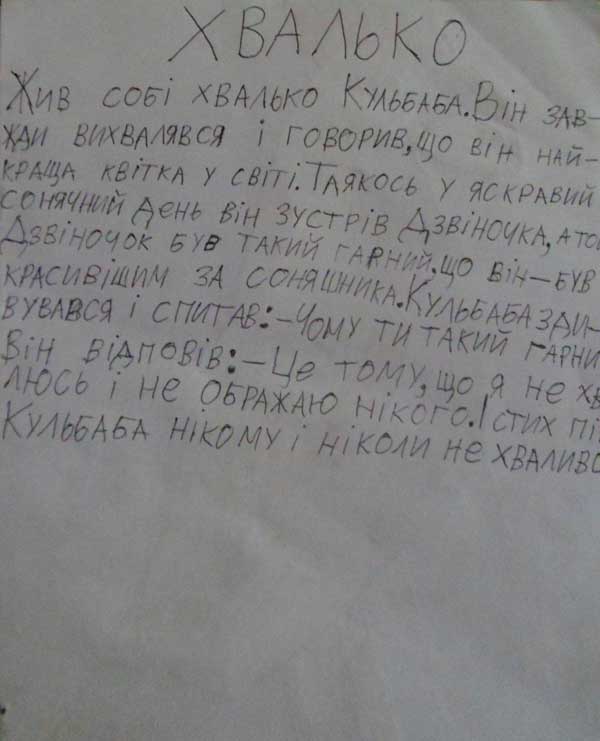 ХВАЛЬКО
Жив собі хвалько Кульбаба. Він зав-
жди вихвалявся і говорив, що він най-
краща квітка у світі. Таякось у яскравий
сонячний день він зустрів Дзвіночка, а то
Дзвіночок був такий гарний. що він – був
красивішим за соняшника. Кульбаба зди-
вувався і спитав: – Чому ти такий гарни
Він відповів: – Це тому, що я не хв
люсь і не ображаю нікого. І стих пі
Кульбаба нікому і ніколи не хваливс